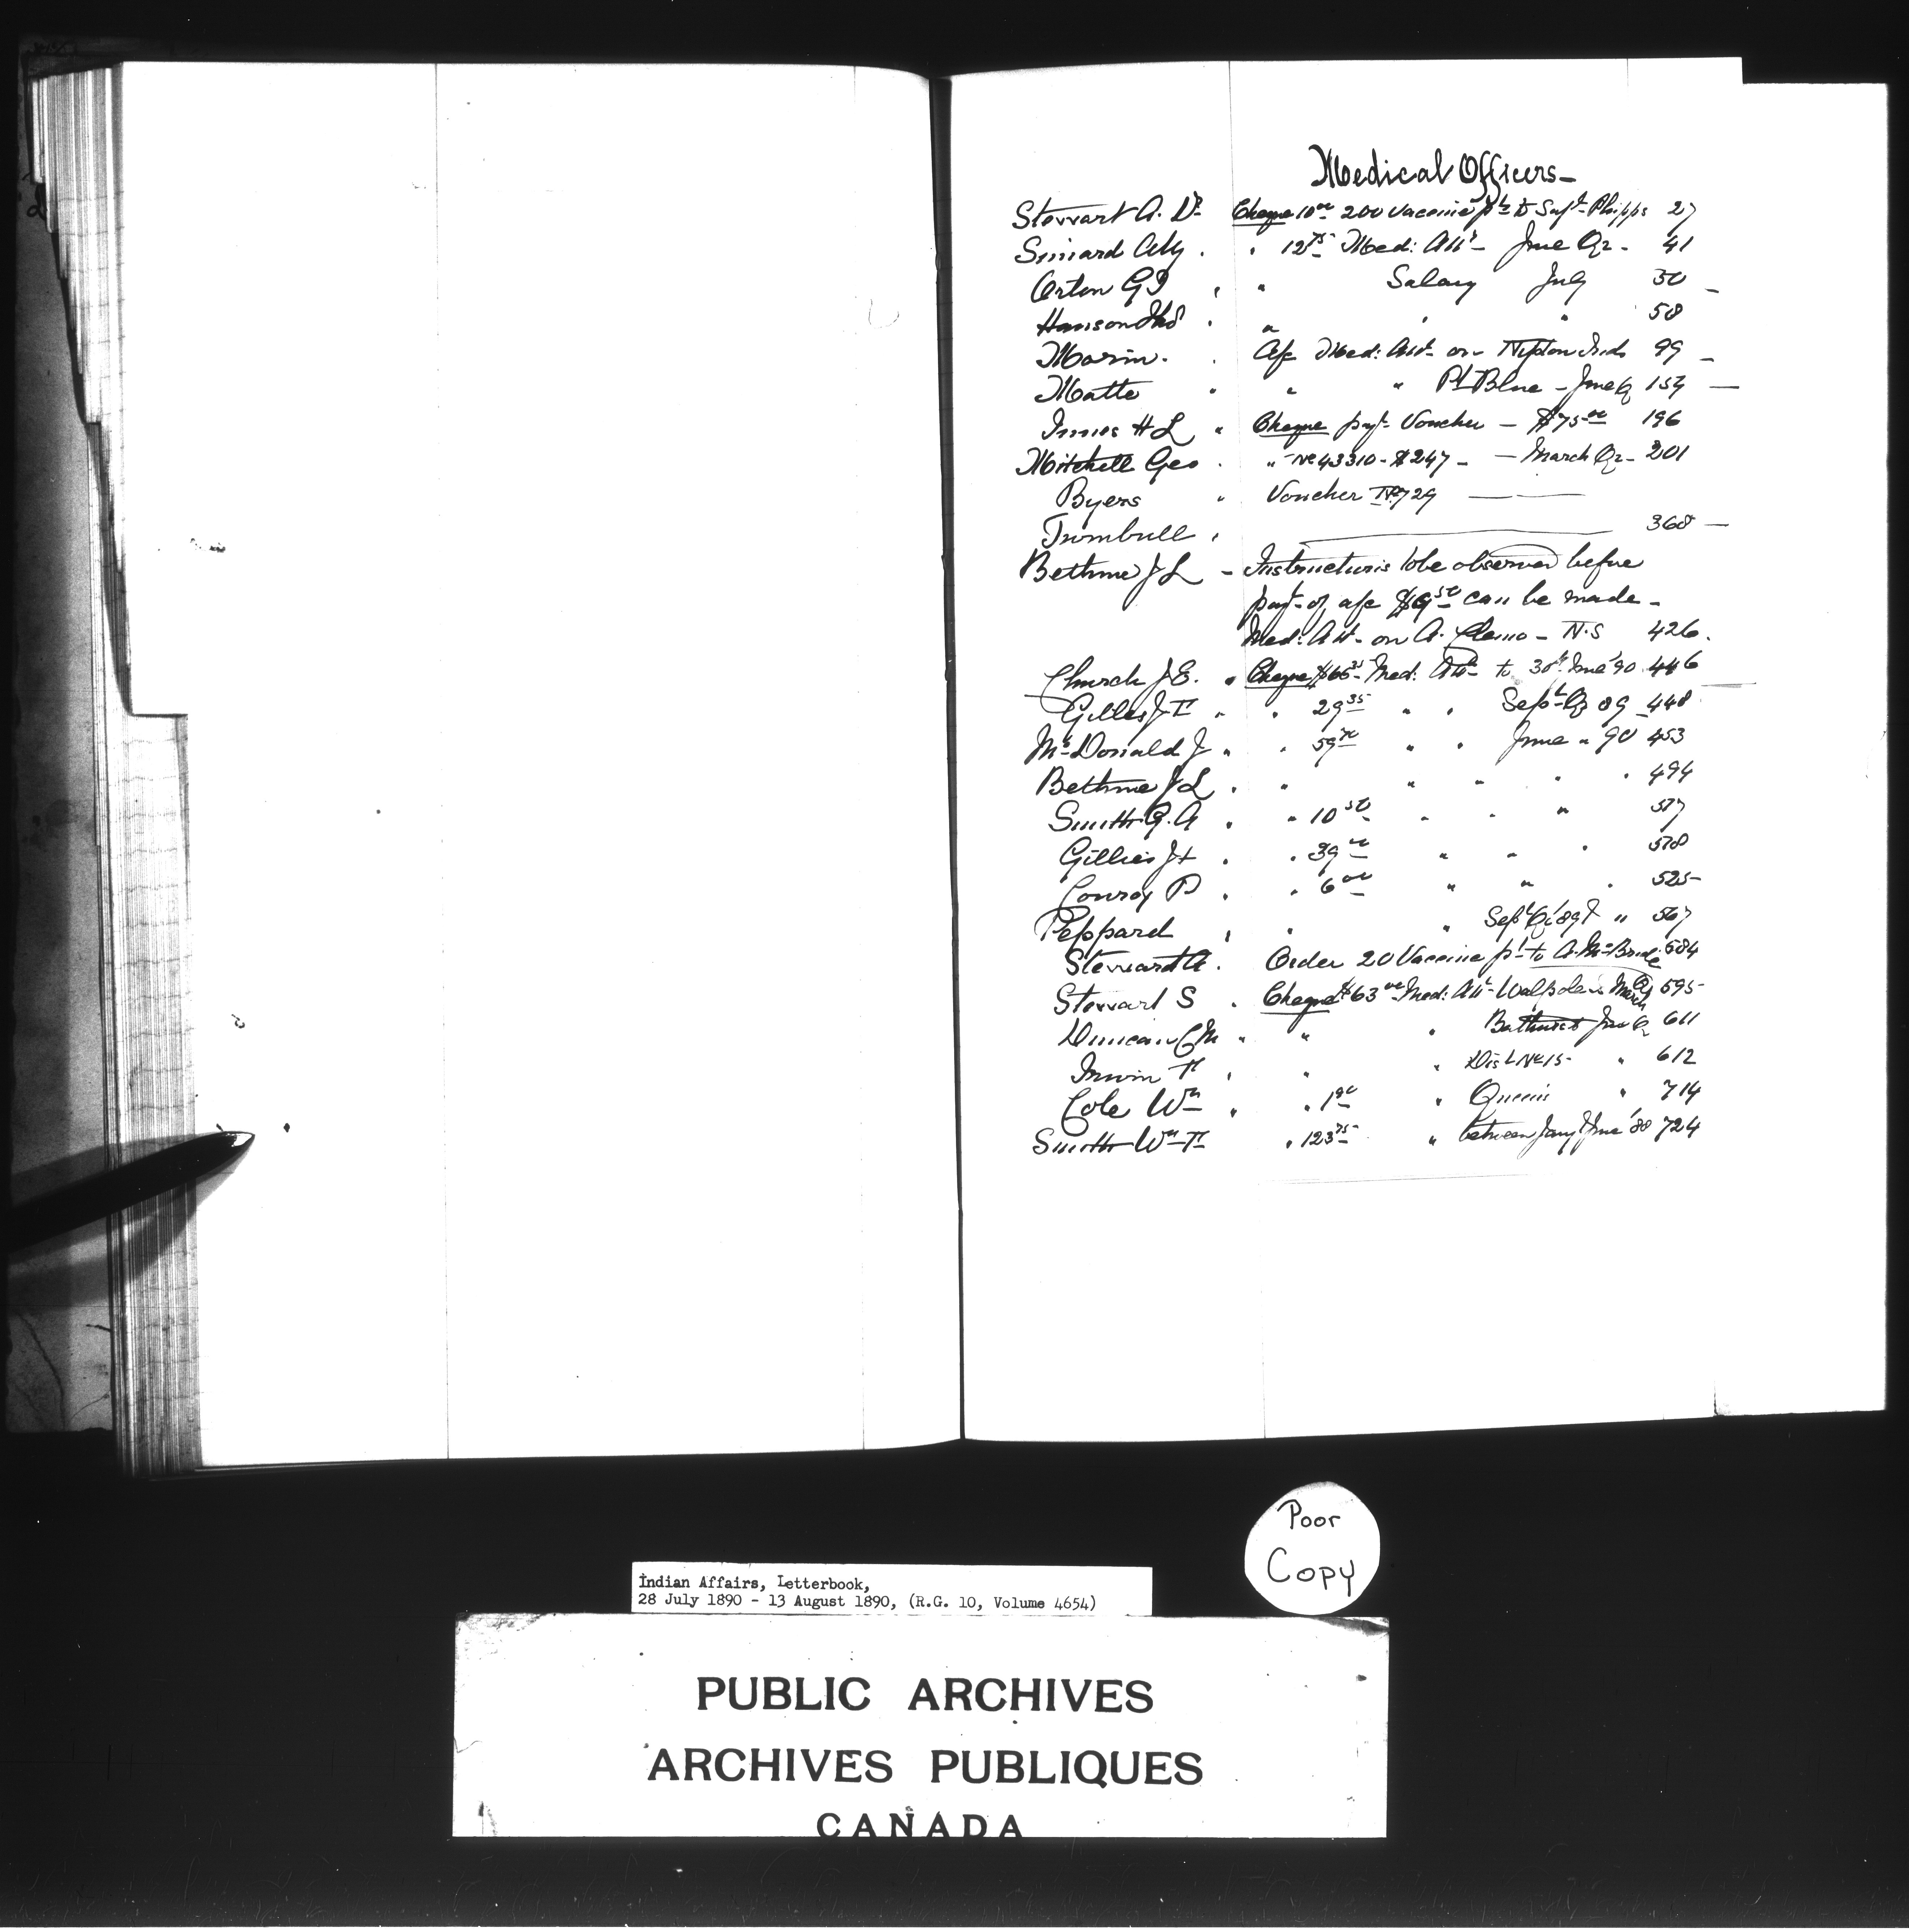 Medical Officers-
Stewart A. Dr Cheque 10 00 200 Vaccine pts to Supt Phipps 27
Simard " 12 75 Med: Att- June Qr- 41
Orton G " " Salary July 50
Hanson " " " " 58
Morin " a/c Med: Att- on Inds 99
Matte " " " Pt Blue - June Q 157
Innes H L " Cheque payt Voucher - $75 00 196
Mitchell Geo " " No 43310 - $247 - - March Qr- 201
Byers " Voucher No 729
Trumbull " 368
Bethune J L - Instructions to be observed before
payt- of a/c $9 50 can be made -
Med: Att- on A. - N.S 426
Church J E. " Cheque $66 35 Med: Att- to 30th June '90 446
Gillies J " " 29 35 " " Sept Q 89 448
McDonald J " " 59 70 " " June " 90 453
Bethune J L " " " " " " 494
Smith G. A " " 10 50 " " "
Gillies J " " 39 00 " " "
Conroy P " " 6 00 " " " 525
Peppard " " " Sept Q '89 & " 567
Stewart A. Order 20 Vaccine pt to A. McBride 584
Stewart S " Cheque $63 00 Med: Att- Walpole Is March Q 595
Duncan C M " " " Bathurst June Q 611
Irwin T " " " Dist No 15 " 612
Cole Wm " " 1 90 " Queens " 714
Smith Wm H " 123 75 " between Jany & June '88 724
Poor
Copy
Indian Affairs, Letterbook,
28 July 1890 - 13 August 1890, (R.G. 10, Volume 4654)
PUBLIC ARCHIVES
ARCHIVES PUBLIQUES
CANADA